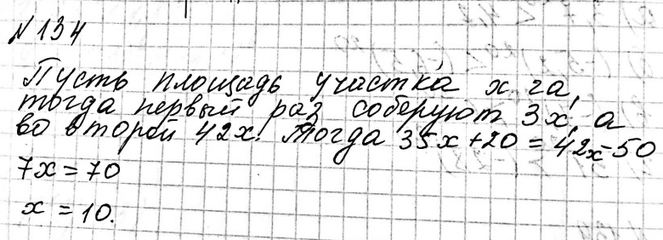 № 134
Пусть площадь участка x га,
тогда первый раз соберуют 3x, а
во второй 42x. Тогда 35x + 20 = 42x - 50
7x = 70
x = 10.